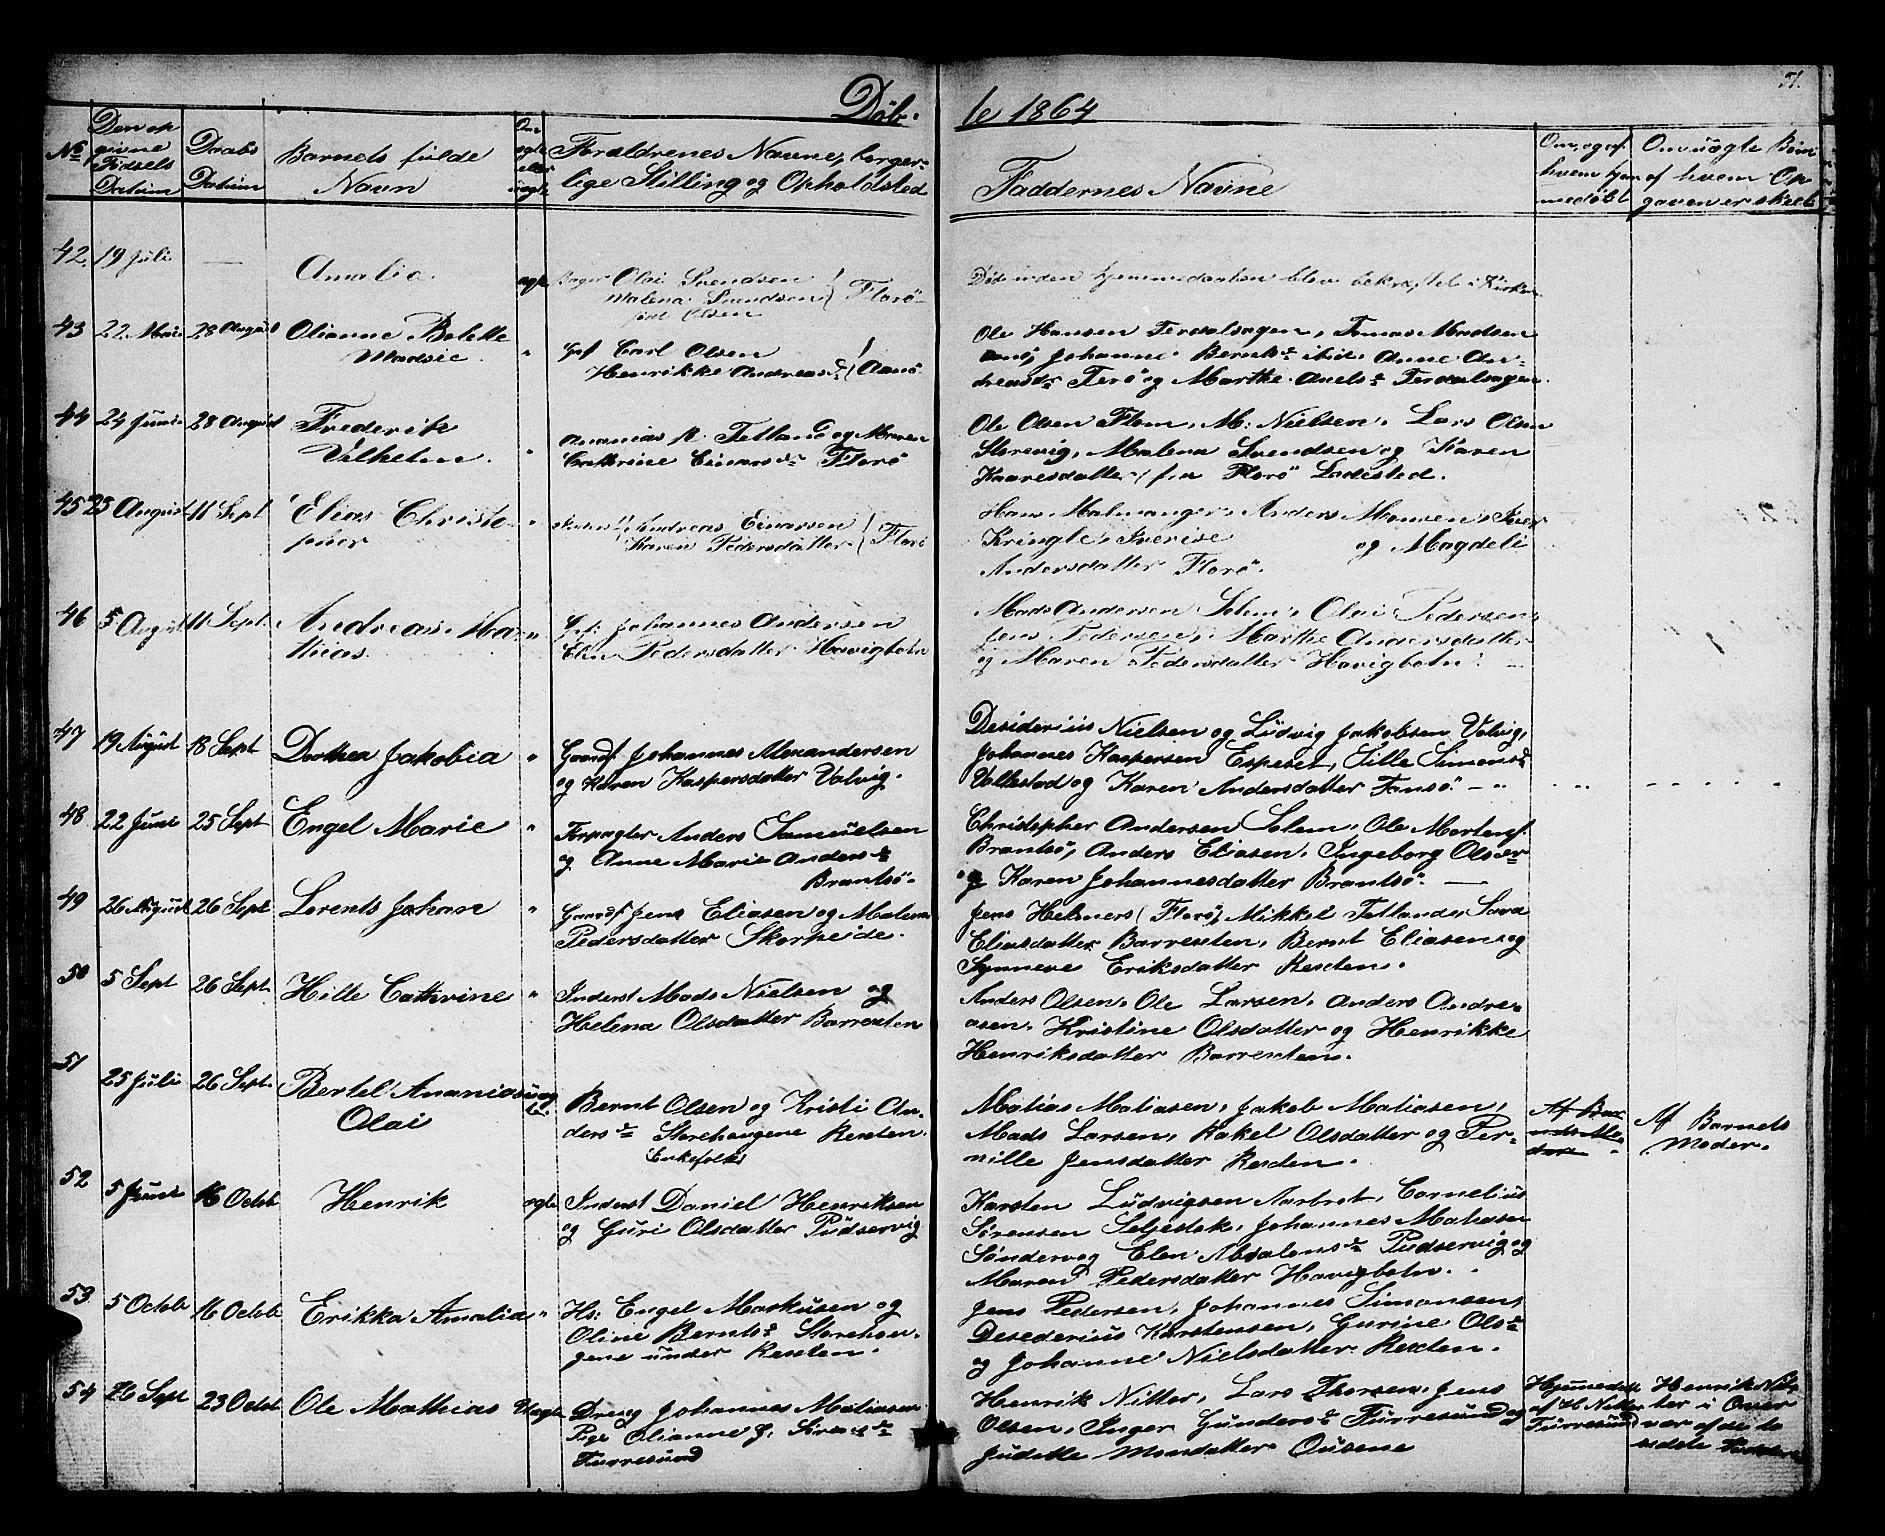 Døb-
te 1864
51.
No
Den op
givne
Fødsels
Datum
Daabs
Datum
Barnets fulde
Navn
Om
ægte
eller
uægte
Forældrenes Navne, borger-
lige Stilling og Opholdsted
Faddernes Navne
Om, og af
hvem hjem
medøbt
Om uægte Børn
af hvem Op
gaven er skeet
42. 19 Juli — Amalia ægte Olai Svendsen
Malena Svendsen } Florö
født Olsen
Død inden hjemmedaaben blev bekræftet i Kirken
43 22 Mai 28 August Olianne Bolette
Madsie "
Carl Olsen
Henrikke Andreasd:
Ole Hansen Ferdalsøgen, Tomas Madsen
Johanne Berntsd: ibid: Anne An-
dreasdr og Marthe Ferdalsøgen
44 24 Juni 28 August Frederik
Vilhelm. "
Ananias Tetland og Maren
Cathrine Einarsdr Florö
Ole Olsen Flom, M: Nielsen, Lars Olsen
Storevig, Malena Svendsen og Karen
Kaaresdatter fra Florö Ladested.
45 23 August 11 Sept Elias Christo-
pher "
Andreas Einarsen
Karen Pedersdatter } Florö
Hans Malmanger, Anders Monsen, Iver
Kringle, og Magdeli
Andersdatter Florö.
46 5 August 11 Sept. Andreas Mat-
thias. "
Johannes Andersen
Elen Pedersdatter Havigbotn
Mads Andersen Solem, Olai Pedersen,
Jens Pedersen, Marthe Andersdatter
og Maren Pedersdatter Havigbotn.
47 19 August 18 Sept Dorthea Jakobia "
Gaardf Johannes Alexandersen
og Karen Kaspersdatter Valvig.
Desiderius Nielsen og Ludvig Jakobsen Valvig,
Johannes Kaspersen Espeset, Sille Simonsd:
Vallestad og Karen Andersdatter Fansö.
48 22 Juni 25 Sept Engel Marie "
Forpagter Anders Samuelsen
og Anne Marie Andersd:
Brantsö.
Christopher Andersen Solem, Ole Mortens:
Brantsö, Anders Eliasen, Ingeborg Olsdr
og Karen Johannesdatter Brantsö. —
49 26 August 26 Sept Lorents Johan "
Gaardf Jens Eliasen og Malena
Pedersdatter Skorpeide.
Jens Helmers (Florö), Mikkel Tetlande, Sara
Eliasdatter Barrexten, Bernt Eliasen og
Synneve Eriksdatter Rexten.
50 5 Sept 26 Sept. Hille Cathrine "
Inderst Mads Nielsen og
Helena Olsdatter Barrexten
Anders Olsen, Ole Larsen, Anders Andre-
asen, Kristine Olsdatter og Henrikke
Henriksdatter Barrexten.
51 25 Juli 26 Sept. Bertel Ananias
Olai uæg
te.
Bernt Olsen og Kristi An-
dersd: Storehougene Rexten.
Enkefolk
Matias Matiasen, Jakob Matiasen,
Mads Larsen, Rakel Olsdatter og Per-
nille Jensdatter Rexten.
Af Barnets
Moder.
52 5 Juni 16 Octob Henrik ægte
Inderst Daniel Henriksen
og Guri Olsdatter Pudservig
Karsten Ludvigsen Aarbrot, Cornelius
Sørensen Seljestok, Johannes Matiasen
Søndervog Elen Absalonsd: Pudservig og
Maren Pedersdatter Havigbotn.
53 5 Octob 16 Octob Erikka Amalia "
Hs: Engel Markusen og
Oline Berntsd: Storehou-
gene under Rexten.
Jens Pedersen, Johannes Simonsen,
Desederius Karstensen, Gurine Olsd:
og Johanne Nielsdatter Rexten.
54 26 Sept 23 Octob Ole Mathias Uægte
Dreng Johannes Matiassen
Pige Olianne J.
Furresund
Henrik Nitter, Lars Thorsen, Jens
Olsen, Inger Gundersd: Furresund og
Juditte Monsdatter Ousene
Hjemmedøbt
af H Nitter
Furresund
Henrik Nit-
ter i Over
vær af de to
sidste Faddere